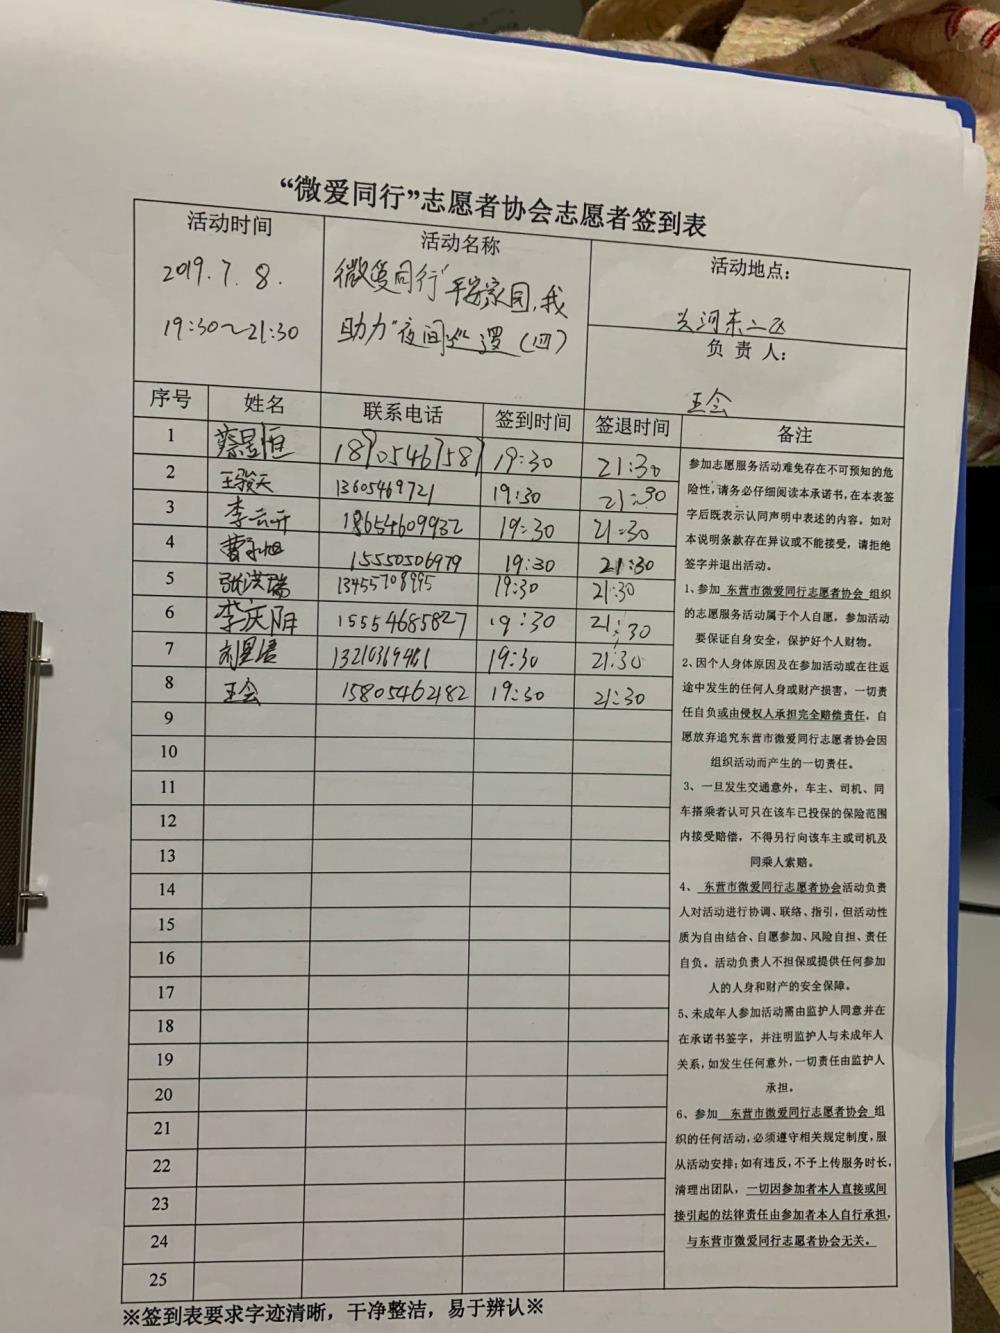 “微爱同行”志愿者协会志愿者签到表
活动时间
2019.7.8.
19:30～21:30
活动名称
微爱同行"平安家园,我
助力"夜间巡逻(四)
活动地点：
河东二区
负责人：
王会
序号 姓名 联系电话 签到时间 签退时间 备注
1 蔡昱恒 18905467587 19:30 21:30
2 王骏天 13605469721 19:30 21:30
3 李云开 18654609932 19:30 21:30
4 曹永旭 15550506979 19:30 21:30
5 张洪瑞 13455708995 19:30 21:30
6 李庆阳 15554685827 19:30 21:30
7 13210369461 19:30 21:30
8 王会 15805462182 19:30 21:30
9
10
11
12
13
14
15
16
17
18
19
20
21
22
23
24
25
参加志愿服务活动难免存在不可预知的危
险性,请务必仔细阅读本承诺书,在本表签
字后既表示认同声明中表述的内容。如对
本说明条款存在异议或不能接受，请拒绝
签字并退出活动。
1、参加 东营市微爱同行志愿者协会 组织
的志愿服务活动属于个人自愿，参加活动
要保证自身安全，保护好个人财物。
2、因个人身体原因及在参加活动或在往返
途中发生的任何人身或财产损害，一切责
任自负或由侵权人承担完全赔偿责任，自
愿放弃追究东营市微爱同行志愿者协会因
组织活动而产生的一切责任。
3、一旦发生交通意外，车主、司机、同
车搭乘者认可只在该车已投保的保险范围
内接受赔偿，不得另行向该车主或司机及
同乘人索赔。
4、 东营市微爱同行志愿者协会活动负责
人对活动进行协调、联络、指引，但活动性
质为自由结合、自愿参加、风险自担、责任
自负。活动负责人不担保或提供任何参加
人的人身和财产的安全保障。
5、未成年人参加活动需由监护人同意并在
在承诺书签字，并注明监护人与未成年人
关系,如发生任何意外,一切责任由监护人
承担。
6、参加 东营市微爱同行志愿者协会 组
织的任何活动，必须遵守相关规定制度，服
从活动安排;如有违反,不予上传服务时长,
清理出团队，一切因参加者本人直接或间
接引起的法律责任由参加者本人自行承担，
与东营市微爱同行志愿者协会无关。
※签到表要求字迹清晰，干净整洁，易于辨认※